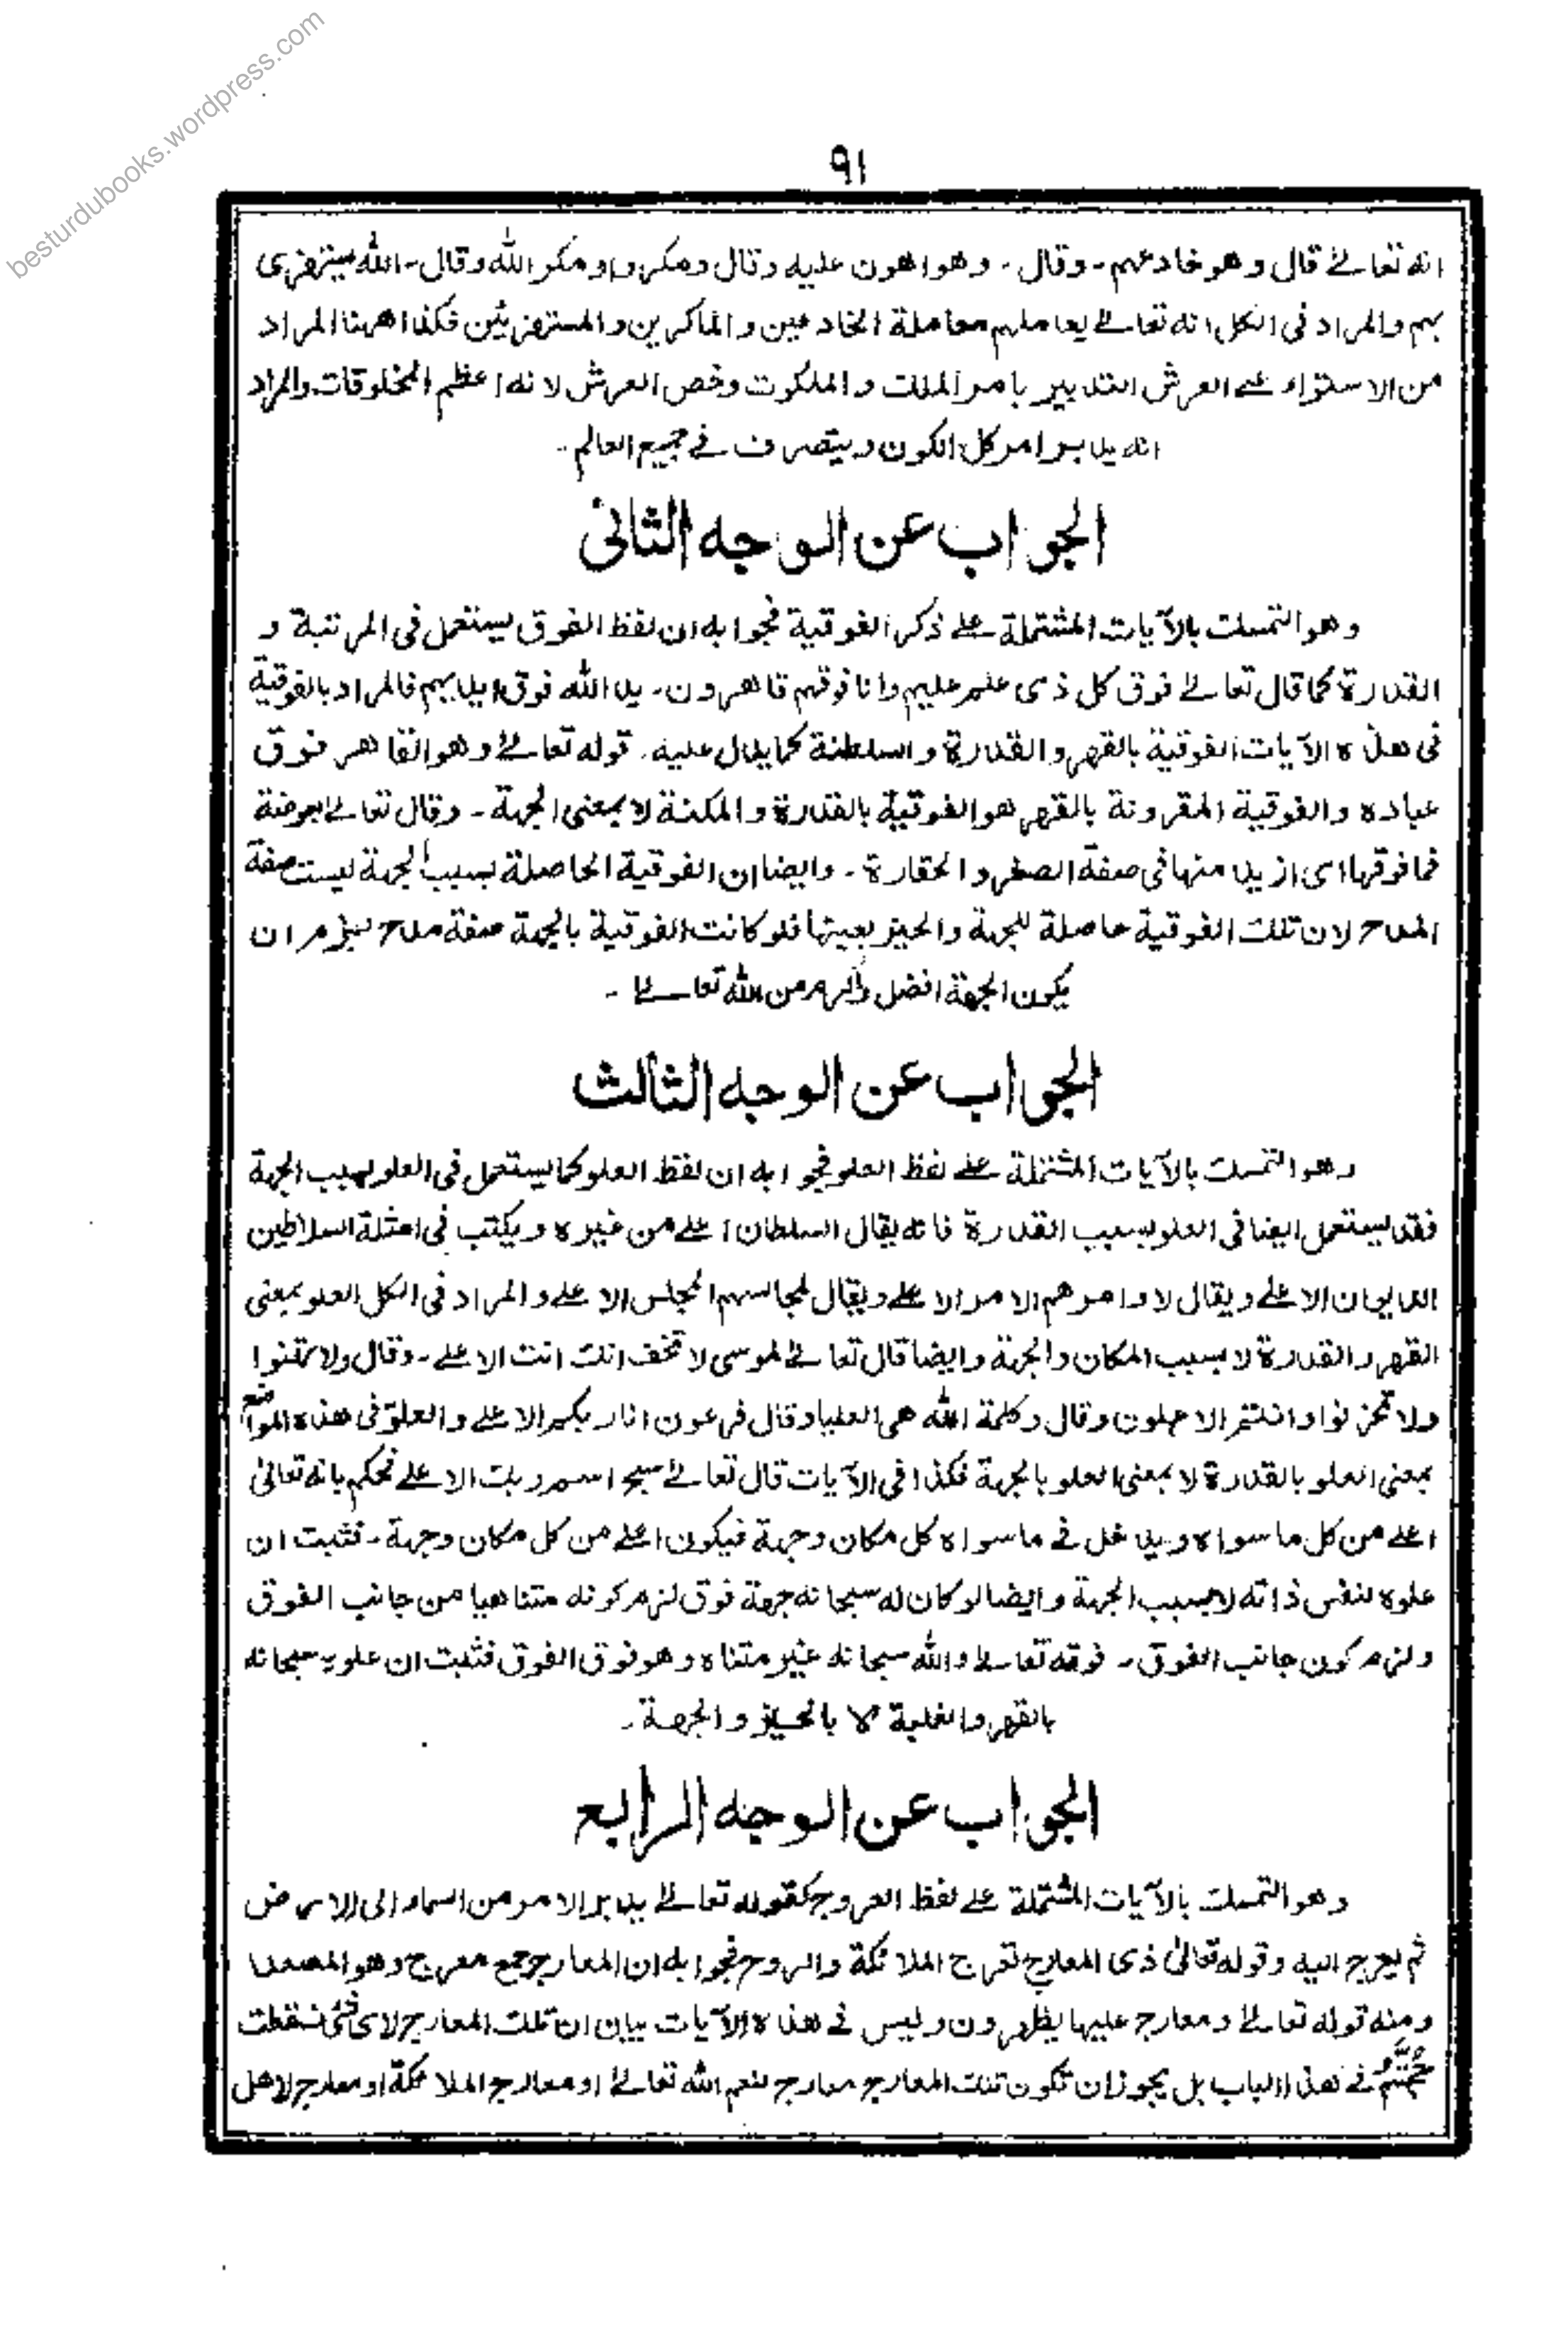 besturdubooks.wordpress.com
٩١
انه تعالےٰ قال وهو خادعهم - وقال - وهو اهون عليه وقال ومكروا ومكر الله وقال - الله يستهزى
بهم والمراد فى الكل انه تعالےٰ يعاملهم معاملة الخادعين والماكرين والمستهزئين فكذا ههنا المراد
من الاستواء علے العرش التدبير بامر الملك والملكوت وخص العرش لانه اعظم المخلوقات والمراد
انه يدبر امر كل الكون ويتصرف فے جميع العالم -
الجواب عن الوجه الثانى
وهو التمسك بالآيات المشتملة علے ذكر الفوقية فجوابه ان لفظ الفوق يستعمل فى المرتبة و
القدرة كما قال تعالےٰ فوق كل ذى علم عليم وانا فوقهم قاهرون - يد الله فوق ايديهم فالمراد بالفوقية
فى هذه الآيات الفوقية بالقهر والقدرة والسلطنة كما يدل عليه - قوله تعالےٰ وهو القاهر فوق
عباده والفوقية المقرونة بالقهر هو الفوقية بالقدرة والمكنة لا بمعنى الجهة - وقال تعالےٰ بعوضة
فما فوقها اى ازيد منها فى صفة الصغر والحقارة - وايضا ان الفوقية الحاصلة بسبب الجهة ليست صفة
المدح لان تلك الفوقية حاصلة للجهة والحيز بعينها فلو كانت الفوقية بالجهة صفة مدح ليزم ان
يكون الجهة افضل واكرم من الله تعالےٰ -
الجواب عن الوجه الثالث
وهو التمسك بالآيات المشتملة علے لفظ العلو فجوابه ان لفظ العلو كما يستعمل فى العلو بسبب الجهة
فقد يستعمل ايضا فى العلو بسبب القدرة فانه يقال السلطان اعلے من غيره ويكتب فى امثلة السلاطين
الديوان الاعلے ويقال لاوامرهم الامر الاعلے ويقال لمجالسهم المجلس الاعلے والمراد فى الكل العلو بمعنى
القهر والقدرة لا بسبب المكان والجهة وايضا قال تعالےٰ لموسى لا تخف انك انت الاعلے - وقال ولا تهنوا
ولا تحزنوا وانتم الاعلون وقال وكلمة الله هى العليا وقال فرعون انا ربكم الاعلے والعلو فى هذه المواضع
بمعنى العلو بالقدرة لا بمعنى العلو بالجهة فكذا فى الآيات قال تعالےٰ سبح اسم ربك الاعلے فحكم بانه تعالىٰ
اعلے من كل ما سواه ويدخل فے ما سواه كل مكان وجهة فيكون اعلے من كل مكان وجهة - فثبت ان
علوه لنفس ذاته لا بسبب الجهة وايضا لو كان له سبحانه جهة فوق لزم كونه متناهيا من جانب الفوق
ولزم كون جانب الفوق - فوقه تعالےٰ والله سبحانه غير متناه وهو فوق الفوق فثبت ان علوه سبحانه
بالقهر والغلبة لا بالحيز والجهة -
الجواب عن الوجه الرابع
وهو التمسك بالآيات المشتملة علے لفظ العروج كقوله تعالےٰ يدبر الامر من السماء الى الارض
ثم يعرج اليه وقوله تعالىٰ ذى المعارج تعرج الملائكة والروح فجوابه ان المعارج جمع معرج وهو المصعد
ومنه قوله تعالےٰ ومعارج عليها يظهرون وليس فے هذه الآيات بيان ان تلك المعارج لاى شئ فسقطت
حجتهم فے هذا الباب بل يجوز ان تكون تلك المعارج معارج لنعم الله تعالےٰ او معارج الملائكة او معارج لاهل